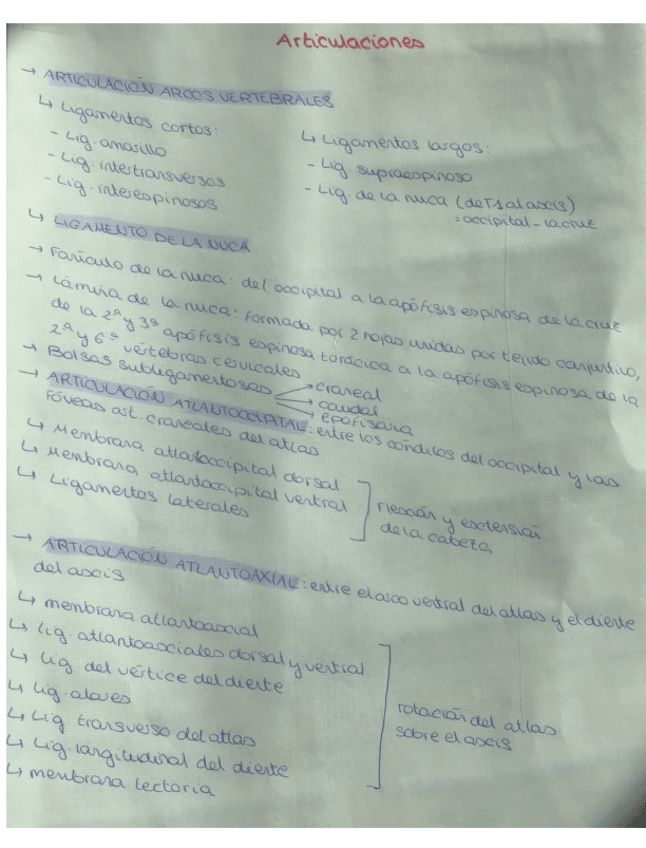 Articulaciones
→ ARTICULACIÓN ARCOS VERTEBRALES
↳ Ligamentos cortos:
- Lig. amarillo
- Lig. intertransversos
- Lig. interespinosos
↳ Ligamentos largos:
- Lig supraespinoso
- Lig. de la nuca (de T1 al axis)
: occipital - la cruz
↳ LIGAMENTO DE LA NUCA
→ Funículo de la nuca: del occipital a la apófisis espinosa de la cruz
→ Lámina de la nuca: formada por 2 hojas unidas por tejido conjuntivo,
de la 2ª y 3ª apófisis espinosa torácica a la apófisis espinosa de la
2ª y 6ª vértebras cervicales
→ Bolsas subligamentosas → craneal
→ caudal
→ epofisaria
→ ARTICULACIÓN ATLANTOCCIPITAL: entre los cóndilos del occipital y las
fóveas art. craneales del atlas
↳ Membrana atlantoccipital dorsal
↳ Membrana atlantoccipital ventral
↳ Ligamentos laterales
flexión y extensión
de la cabeza
→ ARTICULACIÓN ATLANTOAXIAL: entre el arco ventral del atlas y el diente
del axis
↳ membrana atlantoaxial
↳ lig. atlantoaxiales dorsal y ventral
↳ lig del vértice del diente
↳ lig. alares
↳ Lig. transverso del atlas
↳ Lig. longitudinal del diente
↳ membrana tectoria
rotación del atlas
sobre el axis